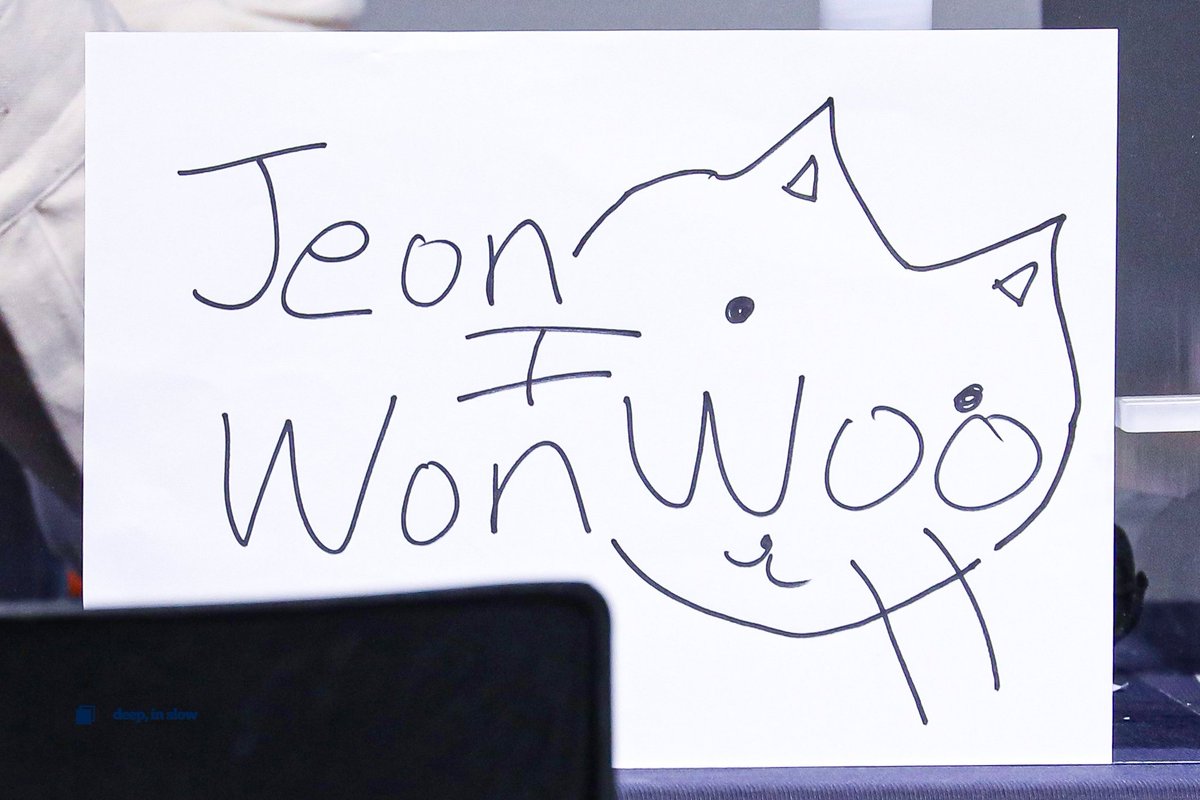 Jeon
I
WonWoo
deep, in slow